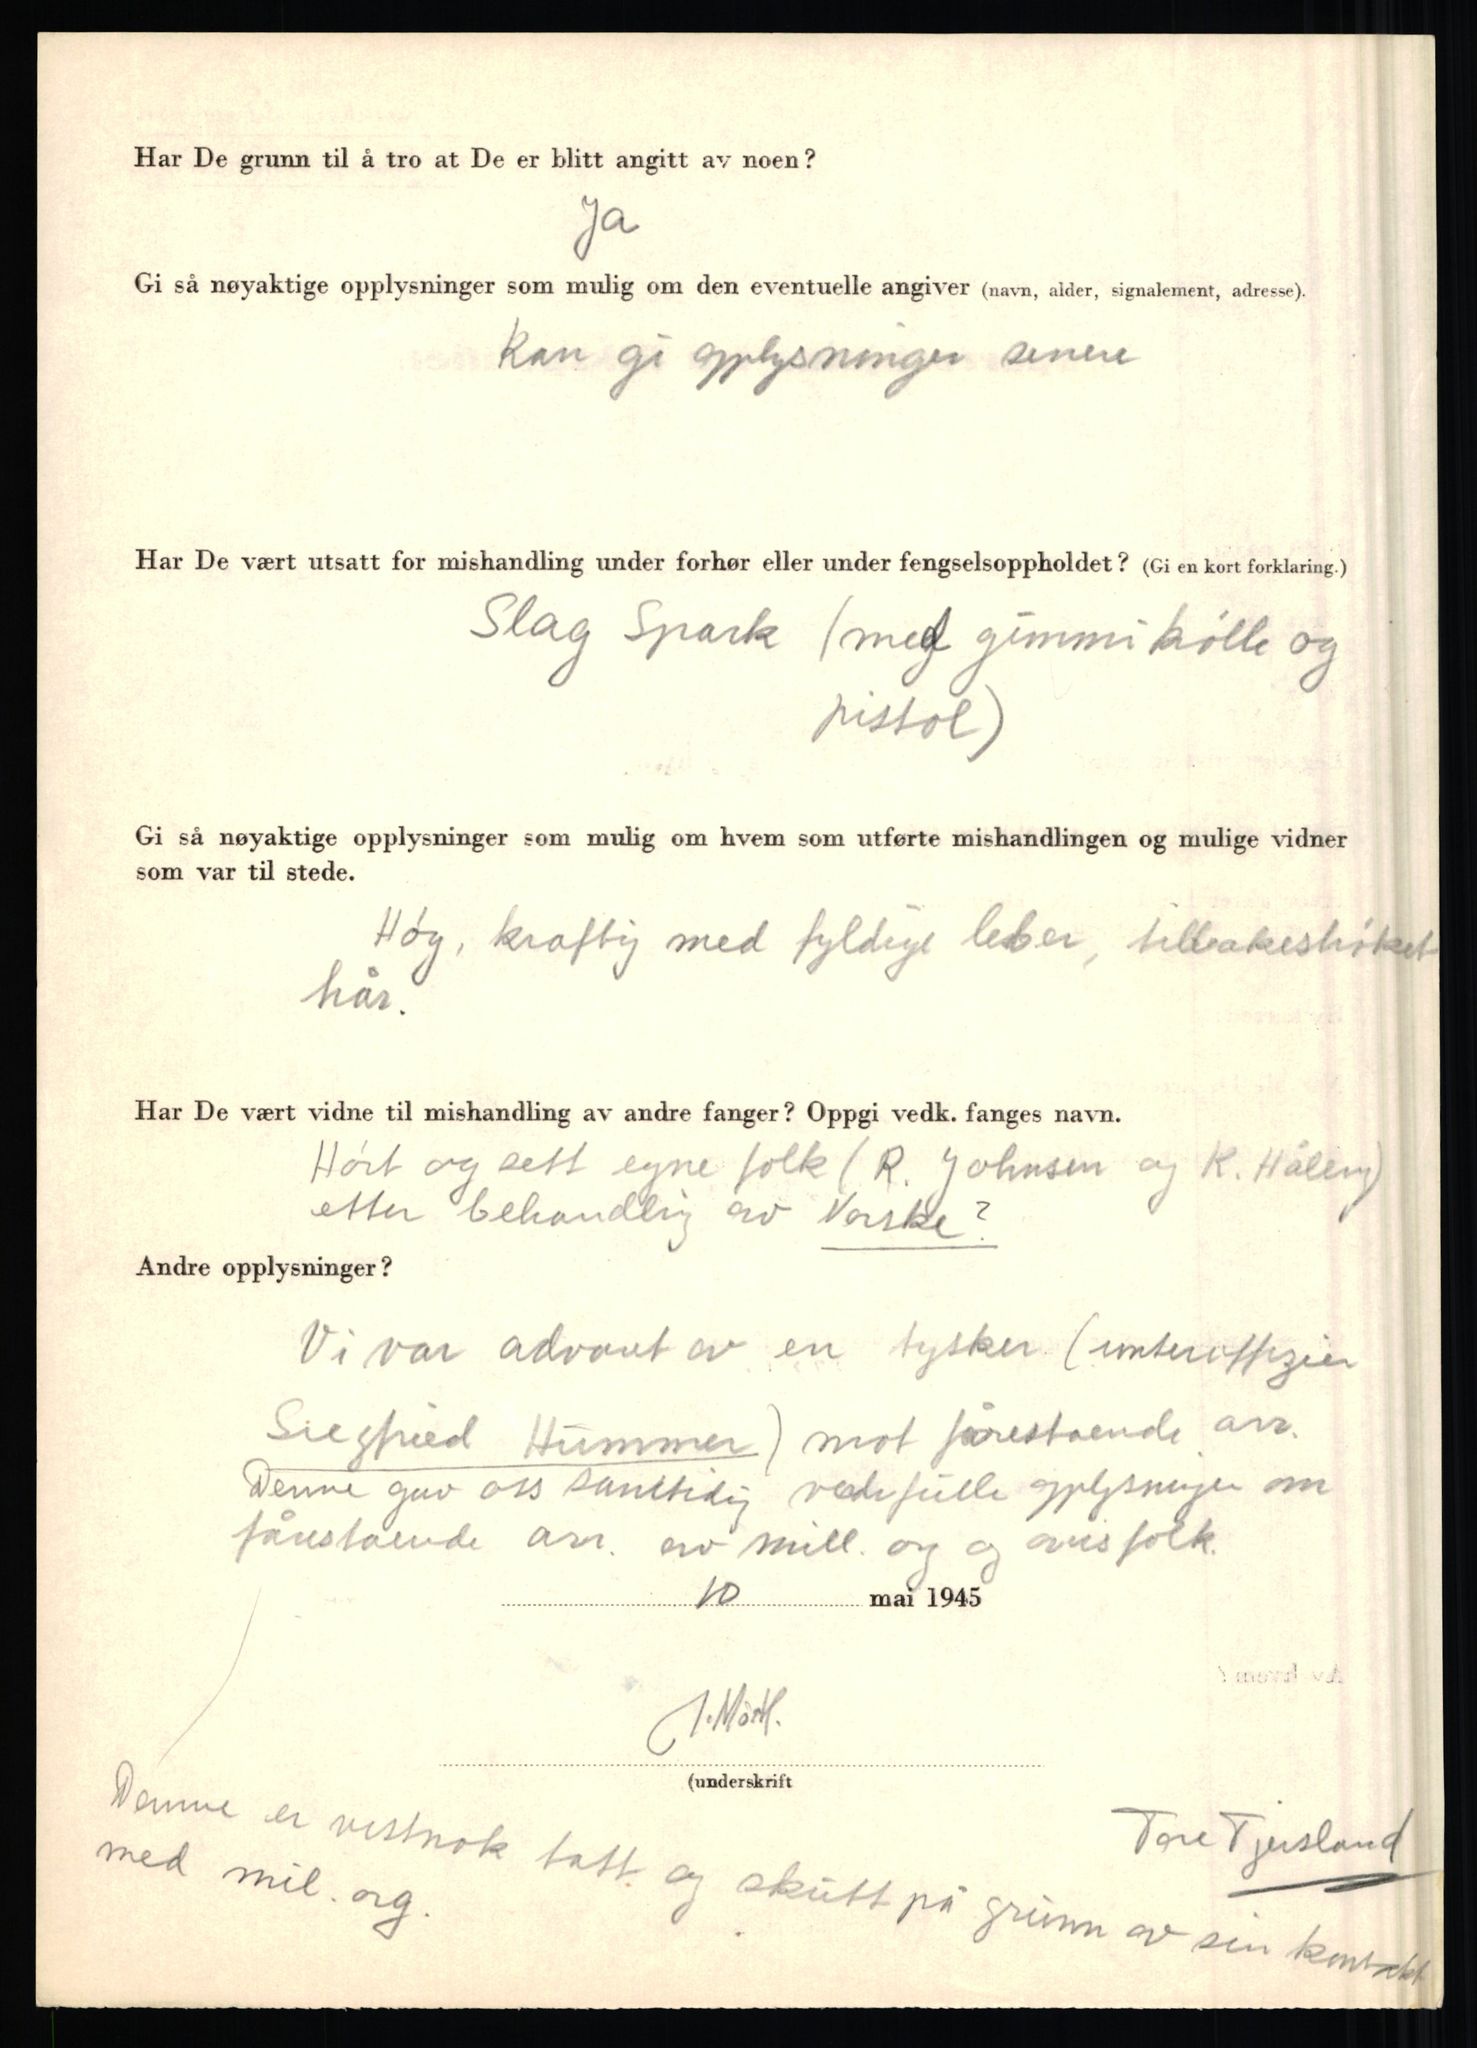 Har De grunn til å tro at De er blitt angitt av noen?
Ja
Gi så nøyaktige opplysninger som mulig om den eventuelle angiver (navn, alder, signalement, adresse).
Kan gi opplysninger senere
Har De vært utsatt for mishandling under forhør eller under fengselsoppholdet? (Gi en kort forklaring.)
Slag Spark (med gummikølle og
pistol)
Gi så nøyaktige opplysninger som mulig om hvem som utførte mishandlingen og mulige vidner
som var til stede.
Høg, kraftig med fyldige leber, tilbakestrøket
hår.
Har De vært vidne til mishandling av andre fanger? Oppgi vedk. fanges navn.
Hørt og sett egne folk (R. Johnsen og K. Håland)
etter behandling av Norske?
Andre opplysninger?
Vi var advart av en tysker (unteroffizier
Siegfried Hummer) mot förestående arr.
Denne gav oss samtidig verdifulle opplysninger om
förestående arr. av mill. org og avisfolk.
10 mai 1945
(underskrift
Tore Tjersland
Denne er vistnok tatt og skutt på grunn av sin kontakt
med mil. org.
Av hvem?